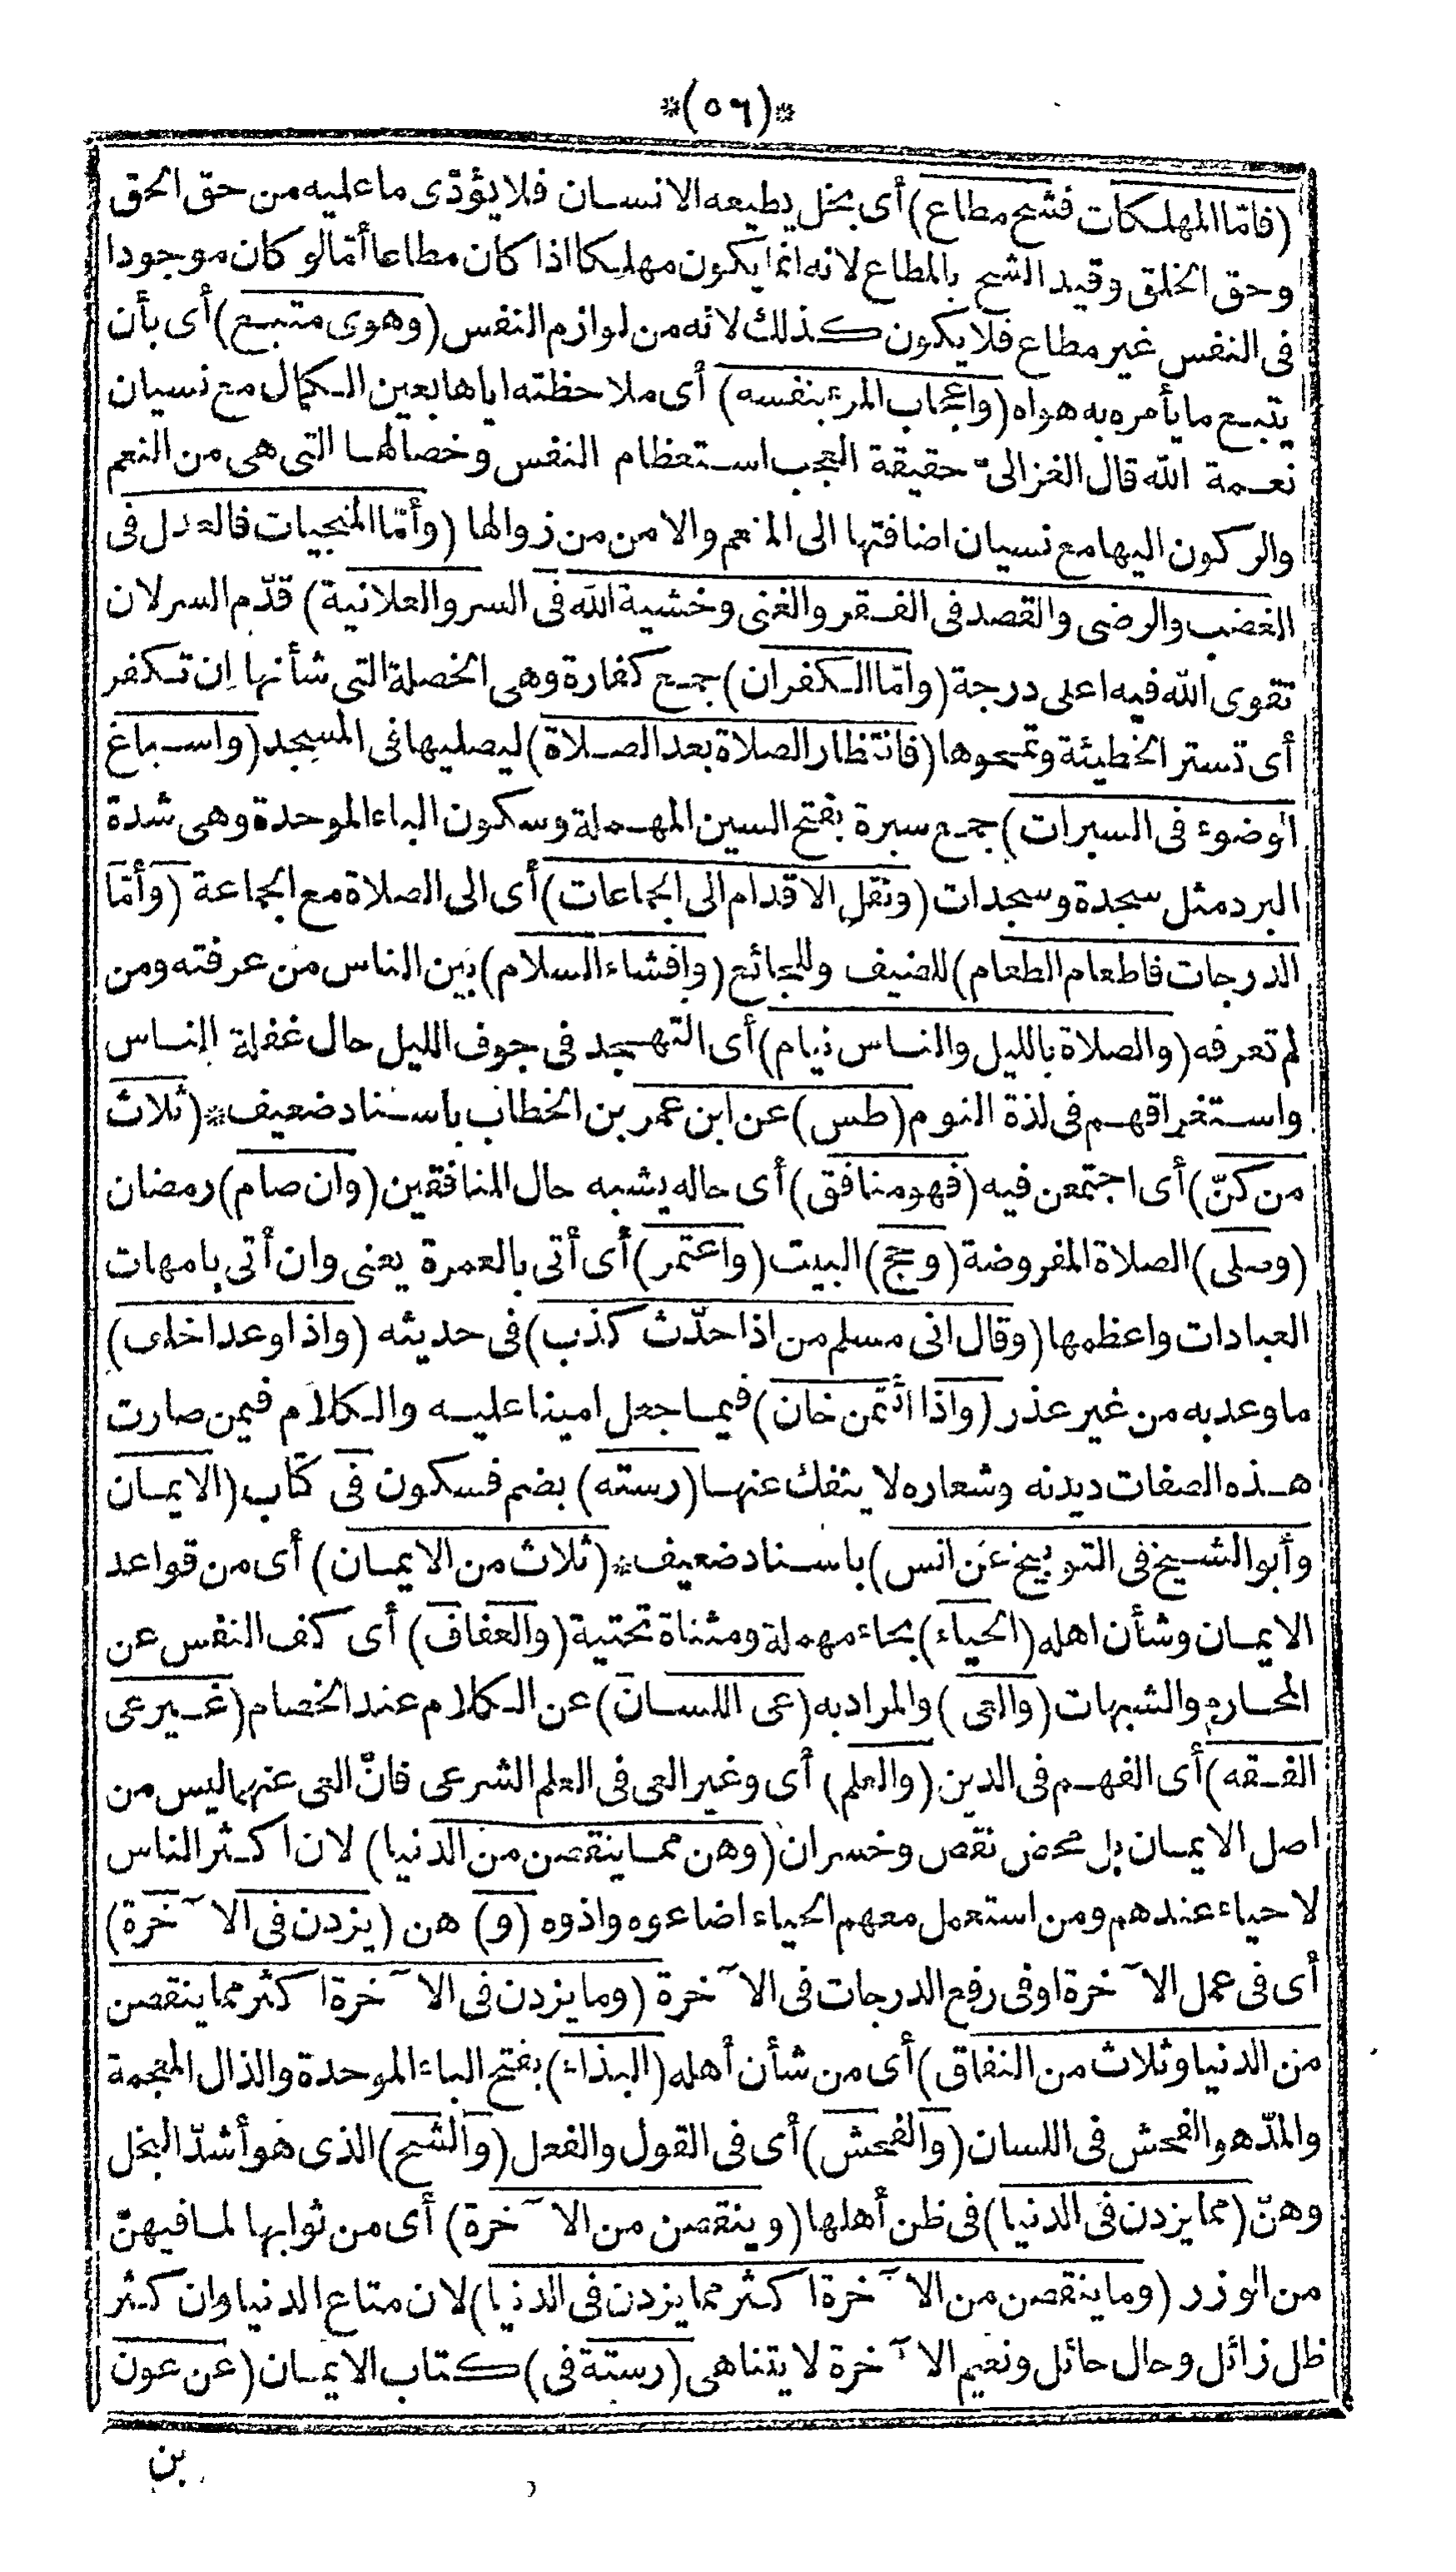 *(٥٦)*
(فامّا المهلكات فشح مطاع) أى بخل يطيعه الانسان فلا يؤدّى ما عليه من حق الحق
وحق الخلق وقيد الشح بالمطاع لانه انما يكون مهلكا اذا كان مطاعا أمّا لو كان موجودا
فى النفس غير مطاع فلا يكون كذلك لانه من لوازم النفس (وهوى متبع) أى بأن
يتبع ما يأمره به هواه (واعجاب المرء بنفسه) أى ملاحظته اياها بعين الكمال مع نسيان
نعمة الله قال الغزالىّ حقيقة العجب استعظام النفس وخصالها التى هى من النعم
والركون اليها مع نسيان اضافتها الى المنعم والامن من زوالها (وأمّا المنجيات فالعدل فى
الغضب والرضى والقصد فى الفقر والغنى وخشية الله فى السر والعلانية) قدّم السر لان
تقوى الله فيه اعلى درجة (وامّا الكفران) جمع كفارة وهى الخصلة التى شأنها ان تكفر
أى تستر الخطيئة وتمحوها (فانتظار الصلاة بعد الصلاة) ليصليها فى المسجد (واسباغ
الوضوء فى السبرات) جمع سبرة بفتح السين المهملة وسكون الباء الموحدة وهى شدة
البرد مثل سجدة وسجدات (ونقل الاقدام الى الجماعات) أى الى الصلاة مع الجماعة (وأمّا
الدرجات فاطعام الطعام) للضيف وللجائع (وافشاء السلام) بين الناس من عرفته ومن
لم تعرفه (والصلاة بالليل والناس نيام) أى التهجد فى جوف الليل حال غفلة الناس
واستغراقهم فى لذة النوم (طس) عن ابن عمر بن الخطاب باسناد ضعيف * (ثلاث
من كنّ) أى اجتمعن فيه (فهو منافق) أى حاله يشبه حال المنافقين (وان صام) رمضان
(وصلى) الصلاة المفروضة (وحج) البيت (واعتمر) أى أتى بالعمرة يعنى وان أتى بامهات
العبادات واعظمها (وقال انى مسلم من اذا حدّث كذب) فى حديثه (واذا وعد اخلف)
ما وعد به من غير عذر (واذا ائتمن خان) فيما جعل امينا عليه والكلام فيمن صارت
هذه الصفات ديدنه وشعاره لا ينفك عنها (رسته) بضم فسكون فى كتاب (الايمان
وأبو الشيخ فى التوبيخ عن انس) باسناد ضعيف * (ثلاث من الايمان) أى من قواعد
الايمان وشأن اهله (الحياء) بحاء مهملة ومثناة تحتية (والعفاف) أى كف النفس عن
المحارم والشبهات (والعى) والمراد به (عى اللسان) عن الكلام عند الخصام (غير عى
الفقه) أى الفهم فى الدين (والعلم) أى وغير العى فى العلم الشرعى فانّ العى عنهما ليس من
اصل الايمان بل محض نقص وخسران (وهن مما ينقصن من الدنيا) لان اكثر الناس
لا حياء عندهم ومن استعمل معهم الحياء اضاعوه واذوه (و) هن (يزدن فى الآخرة)
أى فى عمل الآخرة اوفى رفع الدرجات فى الآخرة (وما يزدن فى الآخرة اكثر مما ينقصن
من الدنيا وثلاث من النفاق) أى من شأن أهله (البذاء) بفتح الباء الموحدة والذال المعجمة
والمدّ هو الفحش فى اللسان (والفحش) أى فى القول والفعل (والشح) الذى هو أشدّ البخل
وهنّ (مما يزدن فى الدنيا) فى ظن أهلها (وينقصن من الآخرة) أى من ثوابها لما فيهنّ
من الوزر (وما ينقصن من الآخرة اكثر مما يزدن فى الدنيا) لان متاع الدنيا وان كثر
ظل زائل وحال حائل ونعيم الآخرة لا يتناهى (رسته فى) كتاب الايمان (عن عون
بن